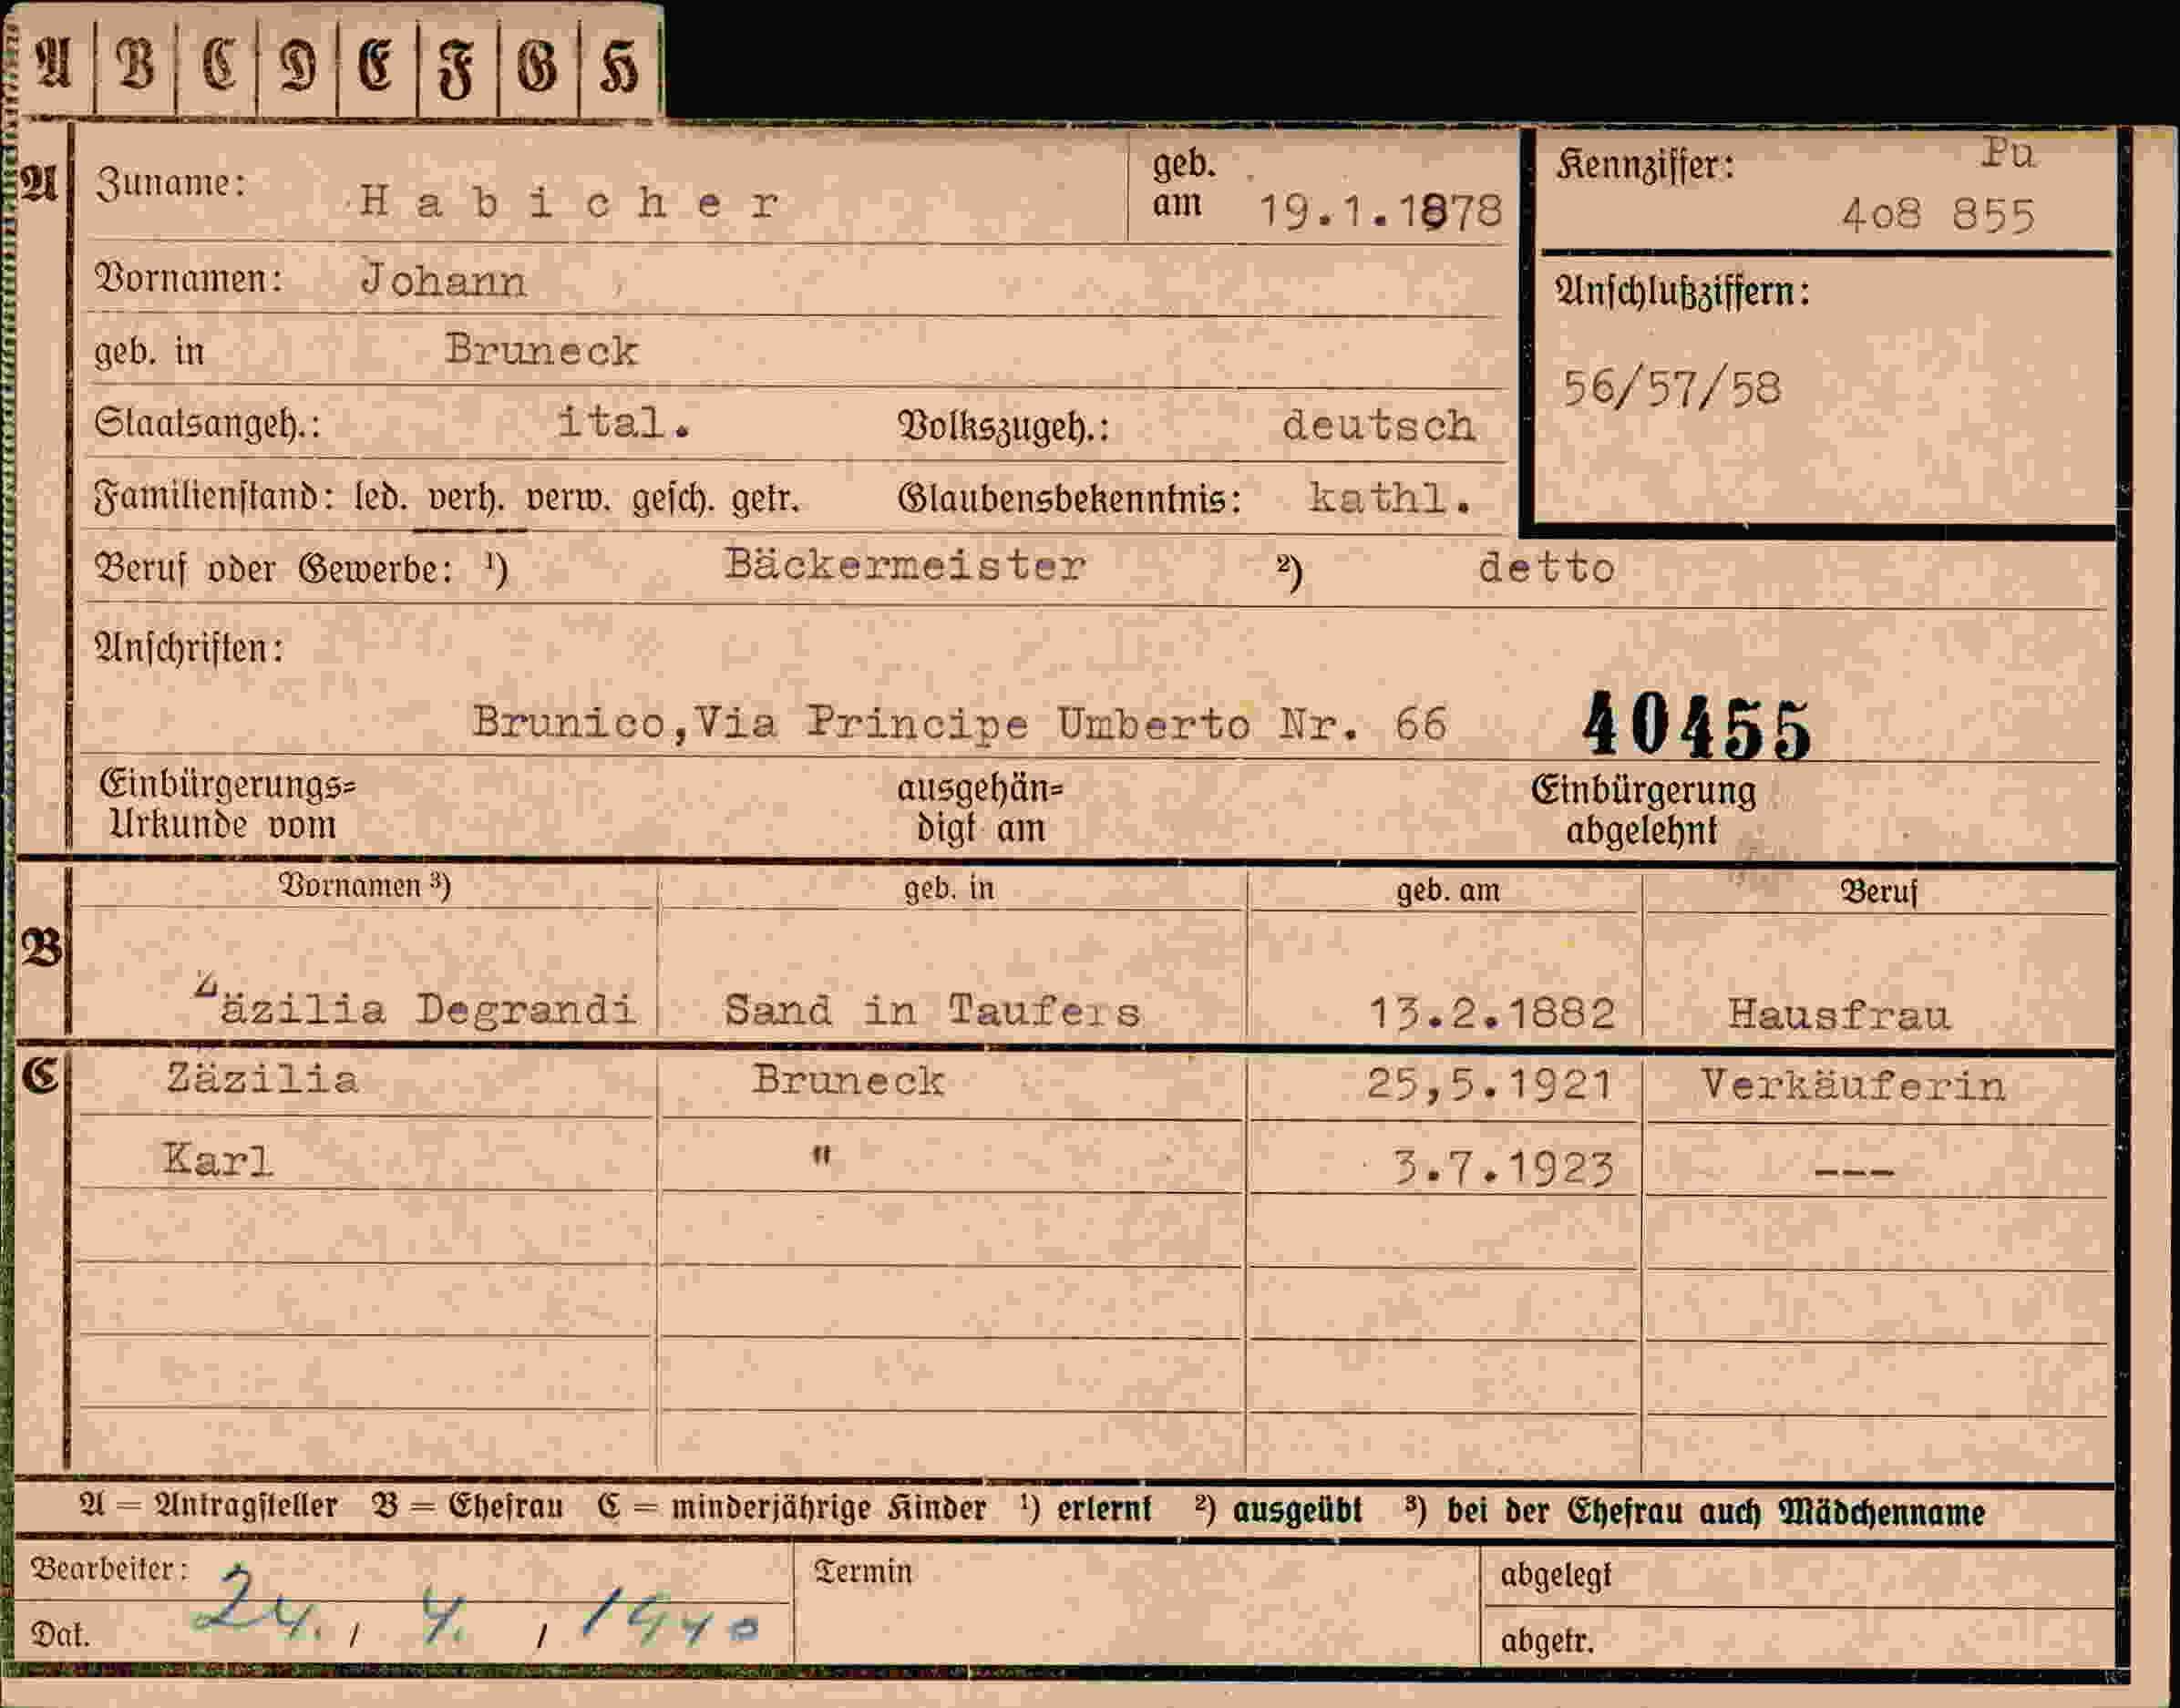 A B C D E F G H
A Zuname: Habicher geb. am 19.1.1878
Kennziffer: Pu 408 855
Vornamen: Johann
Anschlußziffern:
56/57/58
geb. in Bruneck
Staatsangeh.: ital. Volkszugeh.: deutsch
Familienstand: led. verh. verw. gesch. getr. Glaubensbekenntnis: kathl.
Beruf oder Gewerbe: ¹) Bäckermeister ²) detto
Anschriften:
Brunico,Via Principe Umberto Nr. 66 40455
Einbürgerungs= Urkunde vom ausgehän= digt am Einbürgerung abgelehnt
Vornamen ³) geb. in geb. am Beruf
B Zäzilia Degrandi Sand in Taufers 13.2.1882 Hausfrau
C Zäzilia Bruneck 25,5.1921 Verkäuferin
Karl " 3.7.1923 ---
A = Antragsteller B = Ehefrau C = minderjährige Kinder ¹) erlernt ²) ausgeübt ³) bei der Ehefrau auch Mädchenname
Bearbeiter: Termin abgelegt
Dat. 24. / 4. / 1940 abgetr.